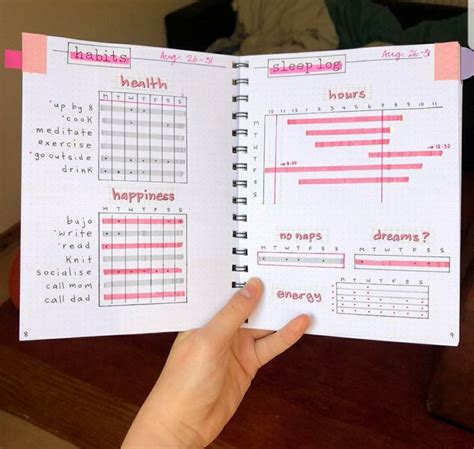 habits
Aug. 26-31
health
M T W T F S S
*up by 8
*cook
meditate
exercise
*go outside
drink
happiness
M T W T F S S
bujo
*write
*read
Knit
socialise
call mom
call dad
8
sleep log
Aug 26-31
hours
10 11 12 1 2 3 4 5 6 7 8 9 10 11
M
T
W
T
→ 12:30
F
→ 8:30
S
S
no naps
M T W T F S S
dreams?
M T W T F S S
energy
M T W T F S S
9